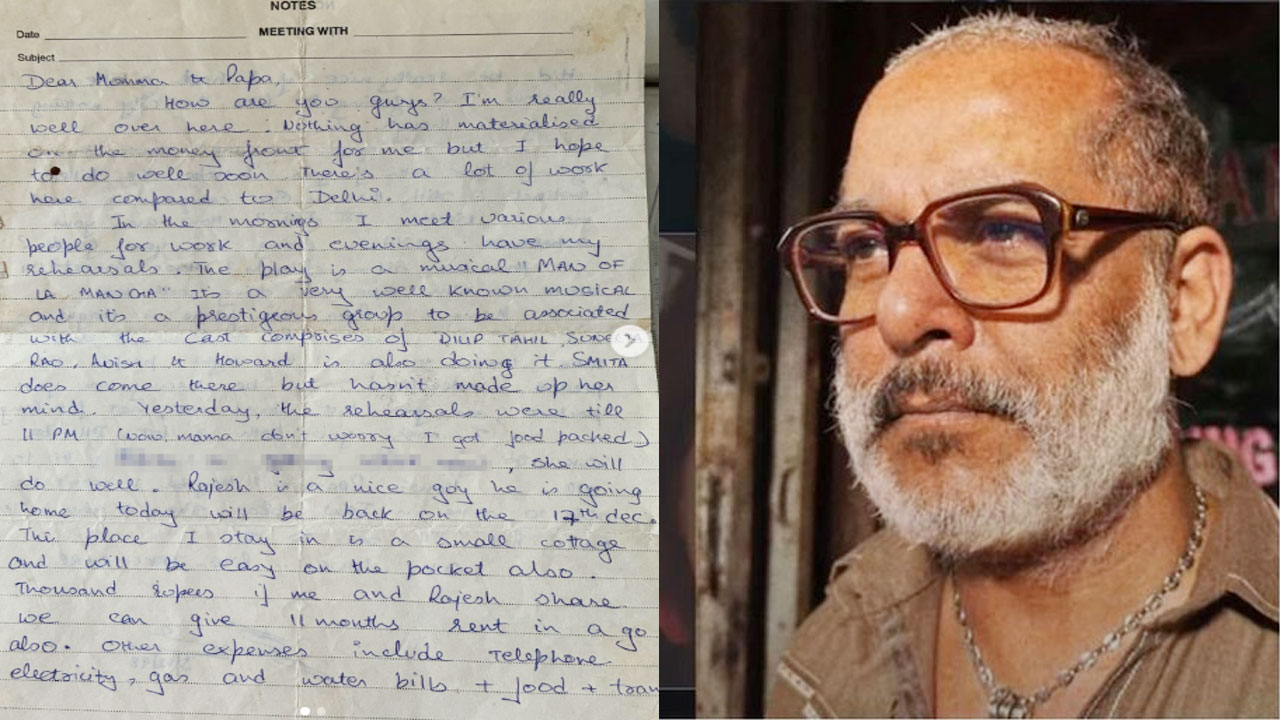 NOTES
Date MEETING WITH
Subject
Dear Momma & Papa,
How are you guys? I'm really
well over here. Nothing has materialised
on the money front for me but I hope
to do well soon There's a lot of work
here compared to Delhi.
In the mornings I meet various
people for work and evenings have my
rehearsals. The play is a musical "MAN OF
LA MANCHA" Its a very well known musical
and its a prestigeous group to be associated
with the Cast comprises of DILIP TAHIL,
RAO, & Howard is also doing it. SMITA
does come there but hasn't made up her
mind. Yesterday, the rehearsals were till
11 PM (wow, mama don't worry I got food packed)
, she will
do well. Rajesh is a nice guy he is going
home today will be back on the 17th dec.
The place I stay in is a small cottage
and will be easy on the pocket also.
Thousand rupees if me and Rajesh share
we can give 11 months rent in a go
also. Other expenses include Telephone
electricity, gas and water bills + food + tran